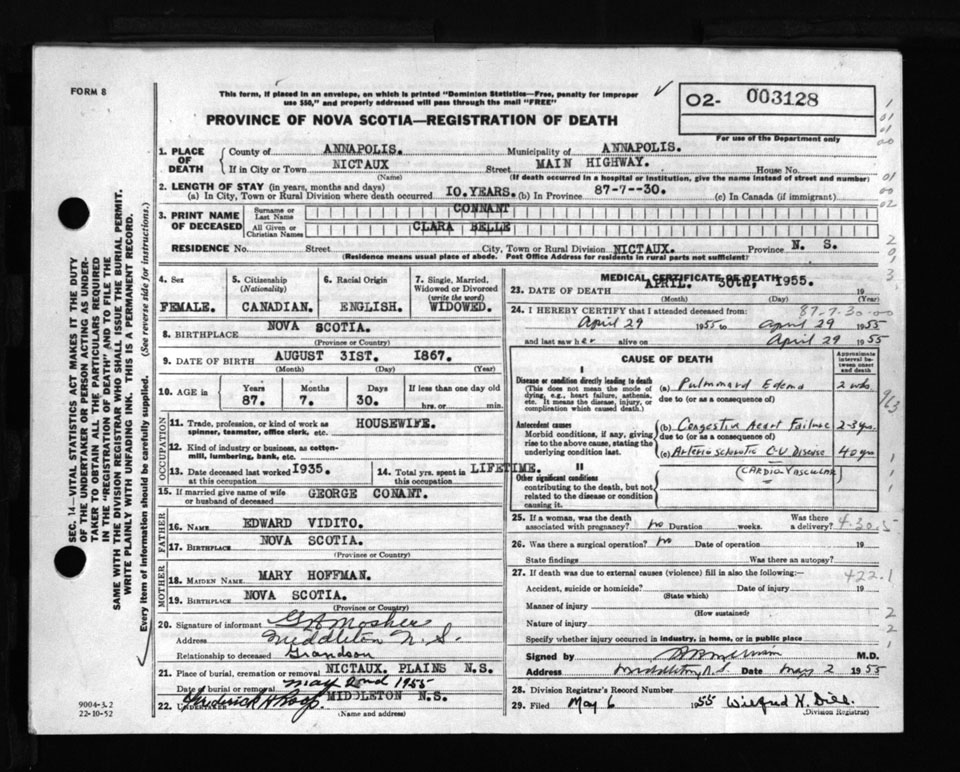 FORM 8
This form, if placed in an envelope, on which is printed "Dominion Statistics—Free, penalty for improper
use $50," and properly addressed will pass through the mail "FREE"
PROVINCE OF NOVA SCOTIA—REGISTRATION OF DEATH
O2- 003128
For use of the Department only
1. PLACE OF DEATH
County of ANNAPOLIS. Municipality of ANNAPOLIS.
If in City or Town NICTAUX Street MAIN HIGHWAY. House No.
(Name) (If death occurred in a hospital or institution, give the name instead of street and number)
2. LENGTH OF STAY (in years, months and days)
(a) In City, Town or Rural Division where death occurred IO.YEARS. (b) In Province 87-7--30. (c) In Canada (if immigrant)
3. PRINT NAME OF DECEASED
Surname or Last Name CONNANT
All Given or Christian Names CLARA BELLE
RESIDENCE No. Street City, Town or Rural Division NICTAUX. Province N. S.
(Residence means usual place of abode. Post Office Address for residents in rural parts not sufficient.)
4. Sex FEMALE.
5. Citizenship (Nationality) CANADIAN.
6. Racial Origin ENGLISH.
7. Single, Married, Widowed or Divorced (write the word) WIDOWED.
8. BIRTHPLACE NOVA SCOTIA.
(Province or Country)
9. DATE OF BIRTH AUGUST 3IST. I867.
(Month) (Day) (Year)
10. AGE in Years Months Days If less than one day old
87. 7. 30. hrs. or min.
OCCUPATION
11. Trade, profession, or kind of work as spinner, teamster, office clerk, etc. HOUSEWIFE.
12. Kind of industry or business, as cotton-mill, lumbering, bank, etc.
13. Date deceased last worked at this occupation I935.
14. Total yrs. spent in this occupation LIFETIME.
15. If married give name of wife or husband of deceased GEORGE CONANT.
FATHER
16. NAME EDWARD VIDITO.
17. BIRTHPLACE NOVA SCOTIA.
(Province or Country)
MOTHER
18. MAIDEN NAME MARY HOFFMAN.
19. BIRTHPLACE NOVA SCOTIA.
(Province or Country)
20. Signature of informant G A Mosher
Address Middleton N. S.
Relationship to deceased Grandson
21. Place of burial, cremation or removal NICTAUX. PLAINS N.S.
Date of burial or removal May 2nd 1955
22. UNDERTAKER MIDDLETON N.S.
(Name and address)
MEDICAL CERTIFICATE OF DEATH
23. DATE OF DEATH APRIL. 30th, 1955. 19
(Month) (Day) (Year)
87-7-30-00
24. I HEREBY CERTIFY that I attended deceased from:
April 29 1955 to April 29 1955
and last saw her alive on April 29 1955
CAUSE OF DEATH
Approximate interval between onset and death
I
Disease or condition directly leading to death
(This does not mean the mode of dying, e.g., heart failure, asthenia, etc. It means the disease, injury, or complication which caused death.)
(a) Pulmonard Edema 2 wks
due to (or as a consequence of)
Antecedent causes
Morbid conditions, if any, giving rise to the above cause, stating the underlying condition last.
(b) Congestive Heart Failure 2-3 yrs.
due to (or as a consequence of)
(c) Arteriosclerotic C-V Disease 40 yrs
(CARDIO VASCULAR)
II
Other significant conditions
contributing to the death, but not related to the disease or condition causing it.
25. If a woman, was the death associated with pregnancy? no Duration weeks. Was there a delivery? 4-30.5
26. Was there a surgical operation? no Date of operation 19
State findings Was there an autopsy?
27. If death was due to external causes (violence) fill in also the following:— 422.1
Accident, suicide or homicide? Date of injury 19
(State which)
Manner of injury
(How sustained)
Nature of injury
Specify whether injury occurred in industry, in home, or in public place
Signed by M.D.
Address Middleton, N.S. Date May 2 1955
28. Division Registrar's Record Number
29. Filed May 6 1955 Wilfred H. Dill.
(Division Registrar)
SEC. 14—VITAL STATISTICS ACT MAKES IT THE DUTY
OF THE UNDERTAKER OR PERSON ACTING AS UNDER-
TAKER TO OBTAIN ALL THE PARTICULARS REQUIRED
IN THE "REGISTRATION OF DEATH" AND TO FILE THE
SAME WITH THE DIVISION REGISTRAR WHO SHALL ISSUE THE BURIAL PERMIT.
WRITE PLAINLY WITH UNFADING INK. THIS IS A PERMANENT RECORD.
Every item of information should be carefully supplied. (See reverse side for instructions.)
9004-3.2
22-10-52